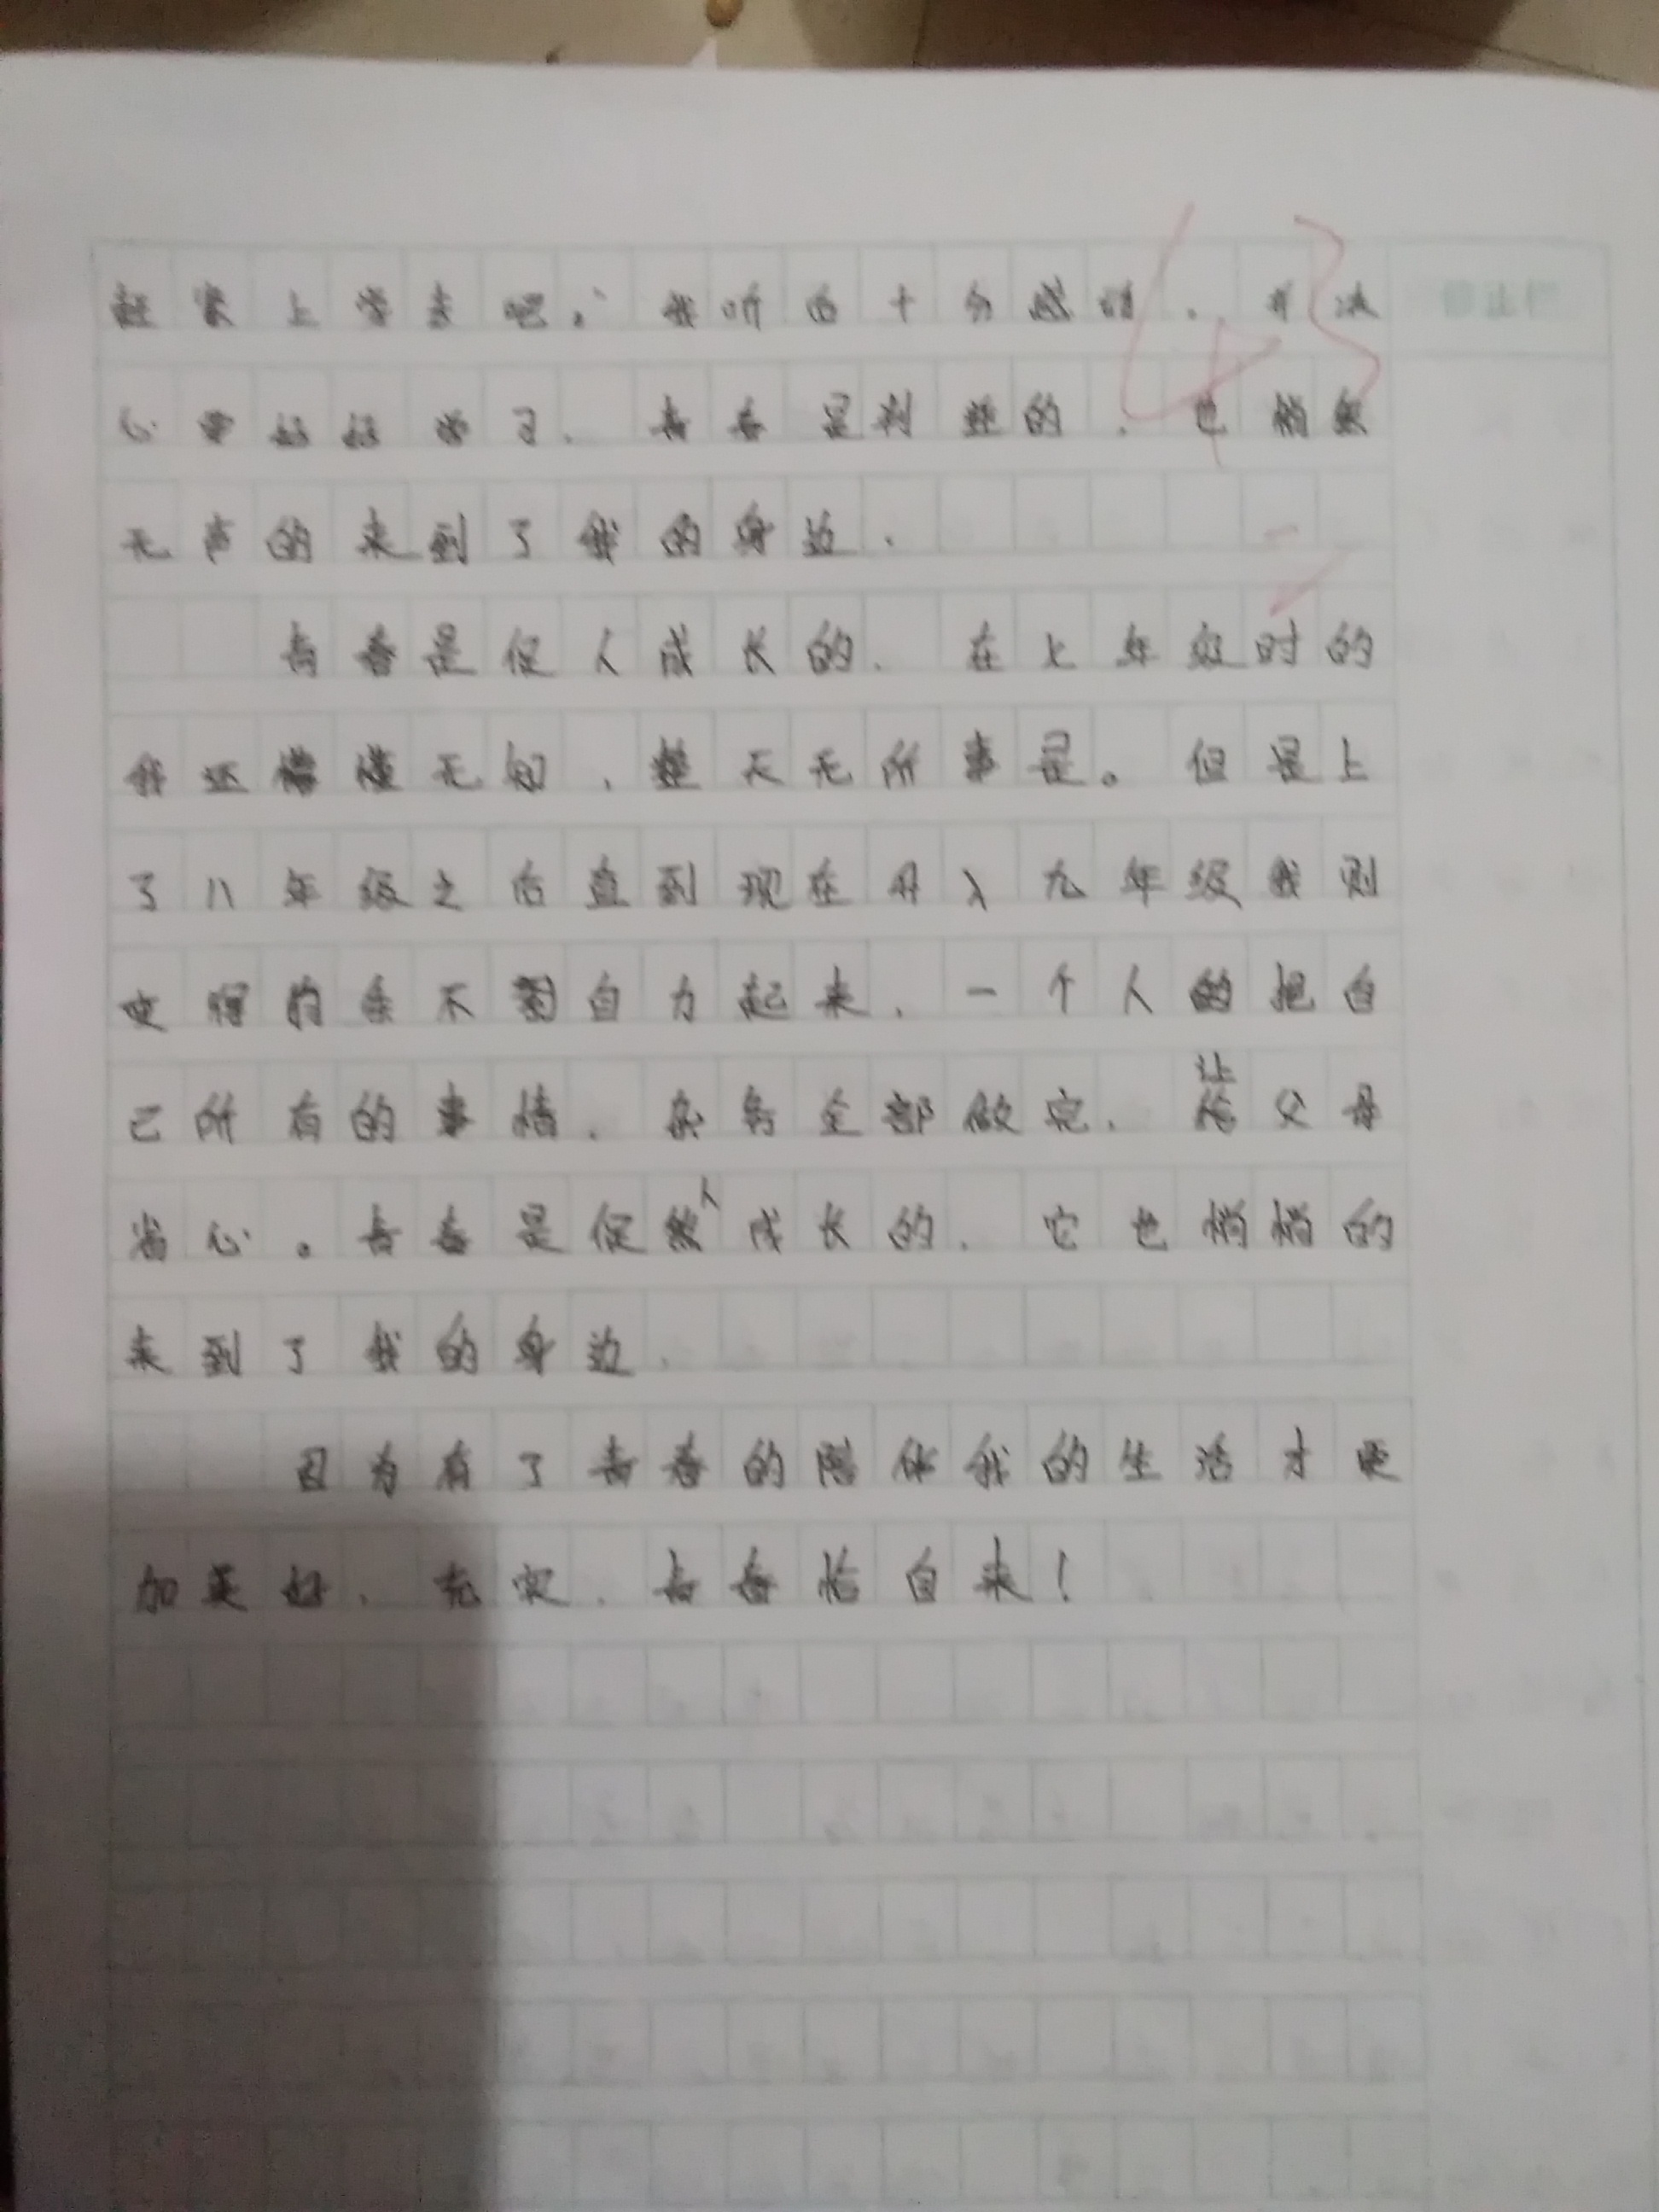 赶紧上学去吧。”我听后十分感动，并决
心要好好学习，青春是判逆的，也悄然
无声的来到了我的身边．
青春是促人成长的．在七年级时的
我还懵懂无知，整天无所事是。但是上
了八年级之后直到现在升入九年级我则
变得自力起来，一个人的把自
己所有的事情．杂务全部做完．让父母
省心。青春是促人成长的．它也悄悄的
来到了我的身边．
因为有了青春的陪伴我的生活才更
加美好．充实．青春恰自来！
43